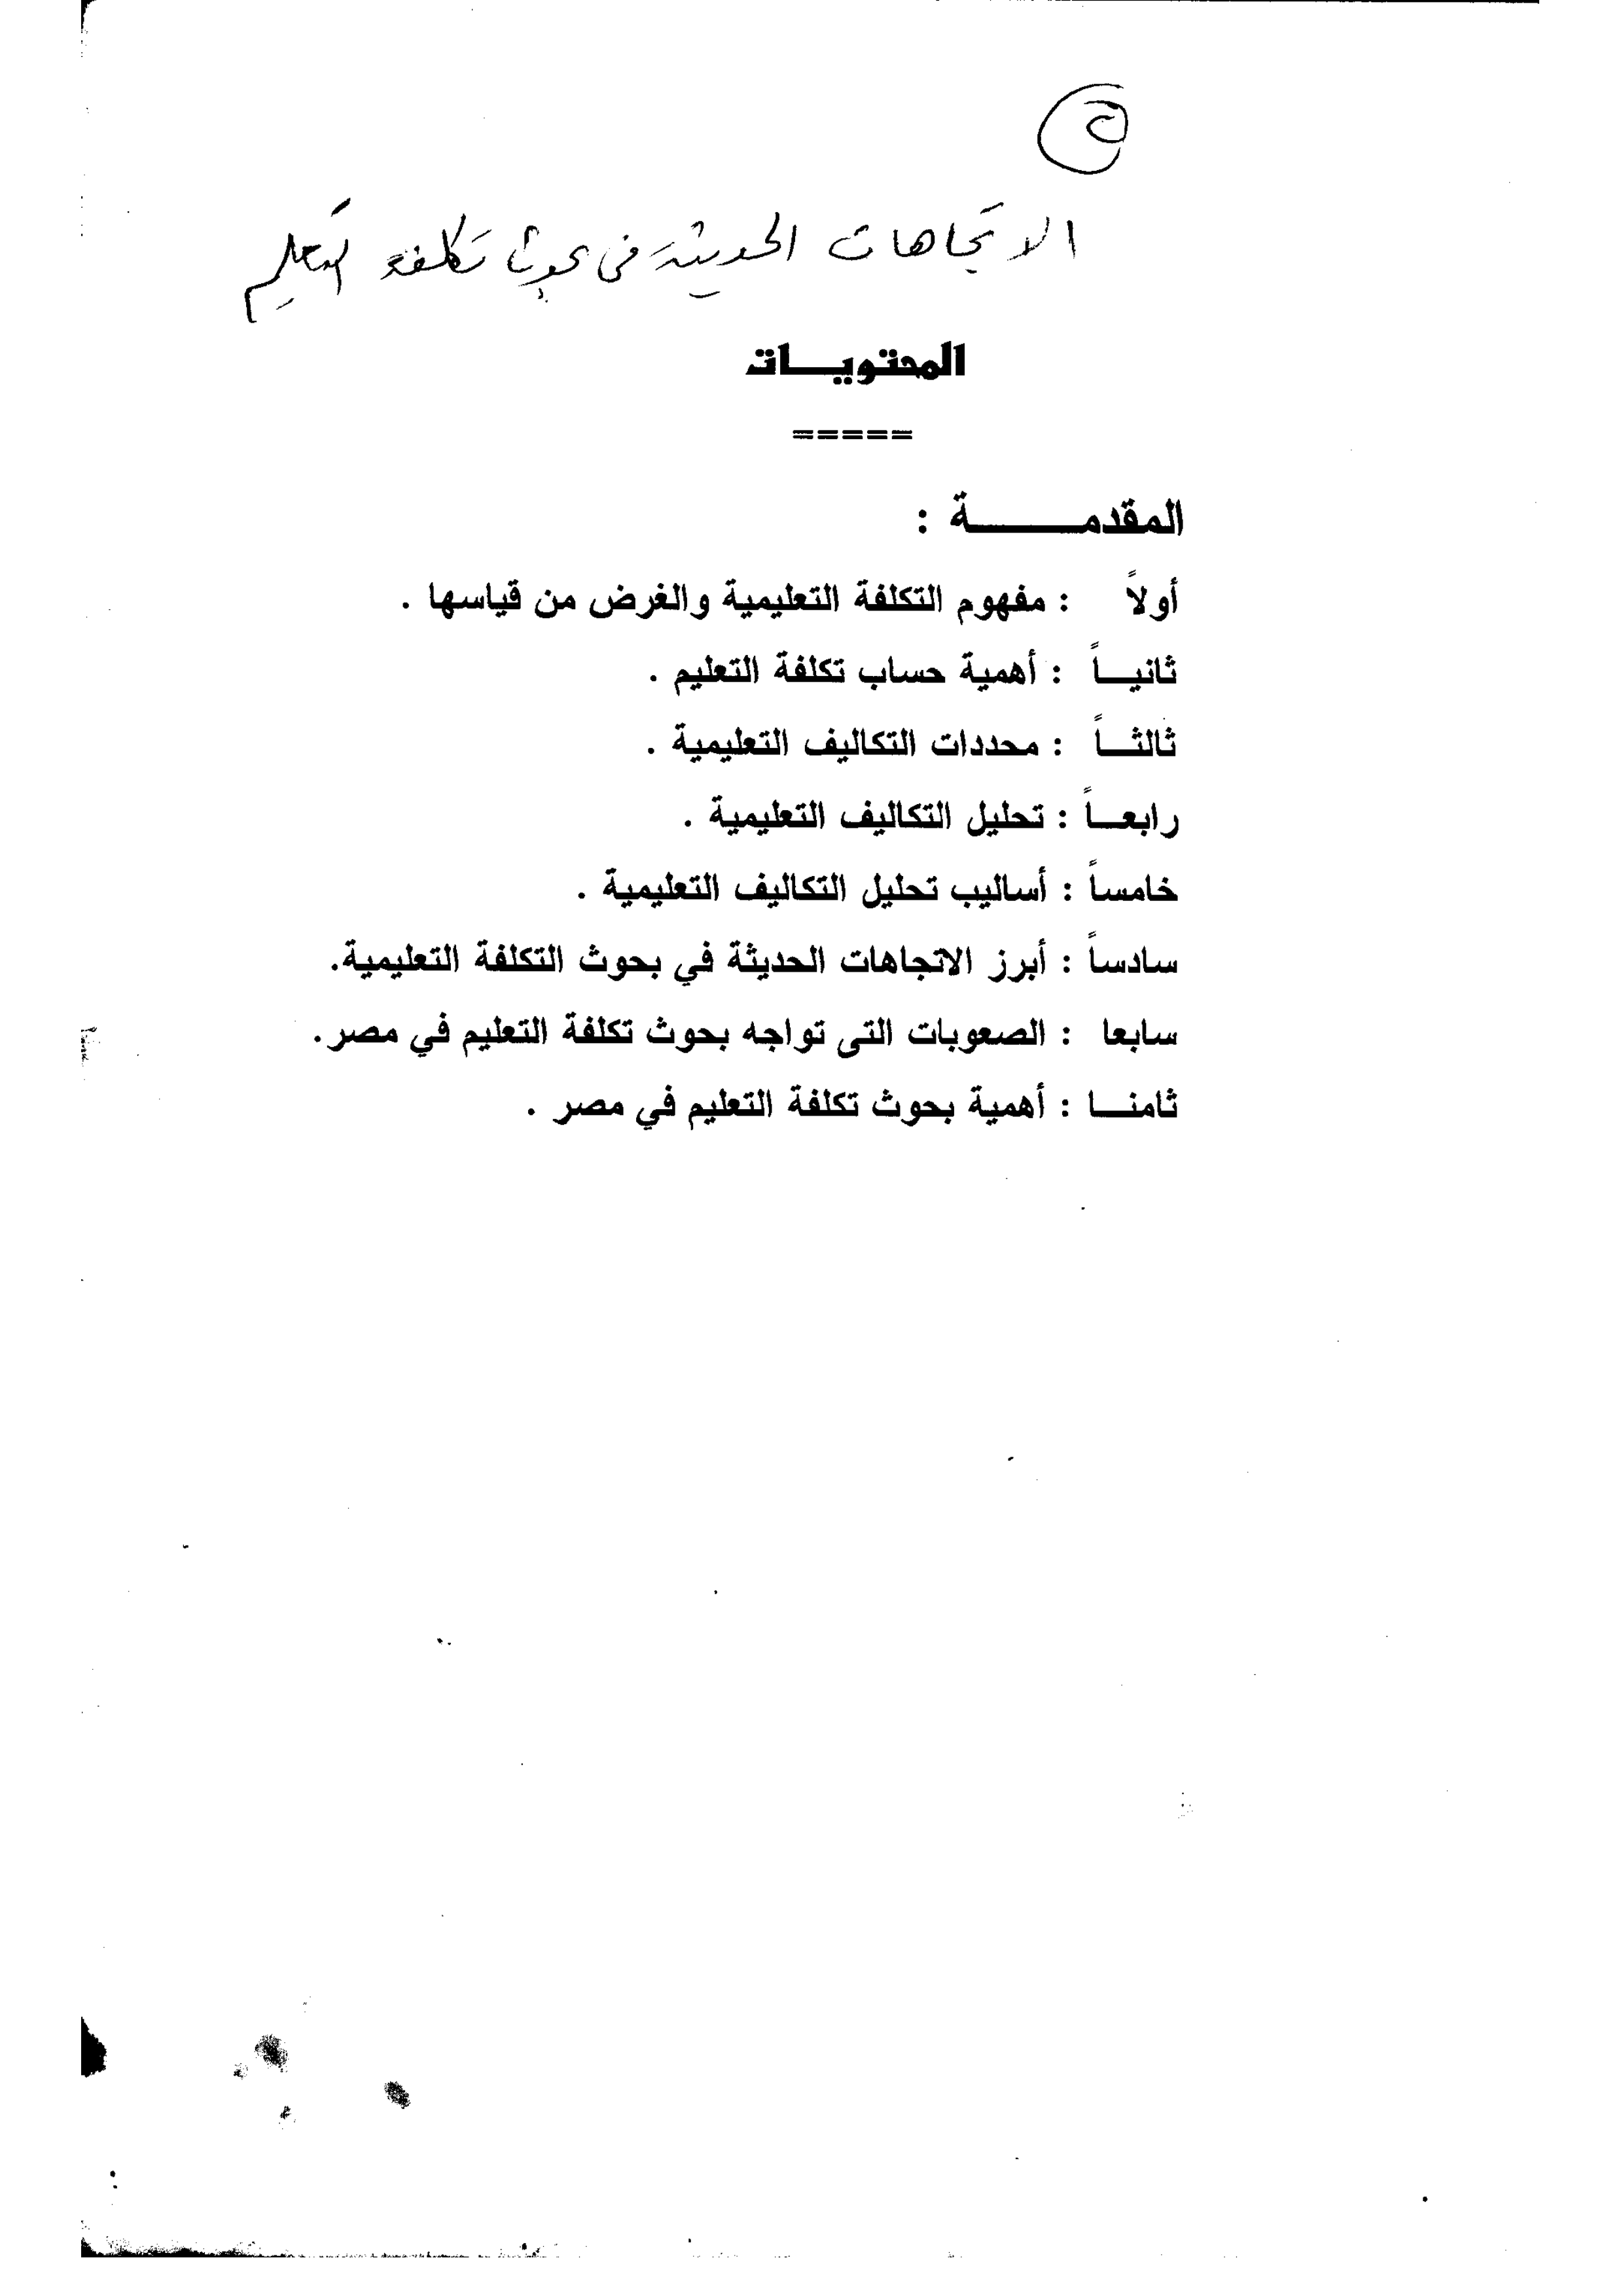 الاتجاهات الحديثة في بحوث تكلفة التعليم
المحتويـــات
=====
المقدمــــــة :
أولاً : مفهوم التكلفة التعليمية والغرض من قياسها .
ثانيــاً : أهمية حساب تكلفة التعليم .
ثالثــاً : محددات التكاليف التعليمية .
رابعــاً : تحليل التكاليف التعليمية .
خامساً : أساليب تحليل التكاليف التعليمية .
سادساً : أبرز الاتجاهات الحديثة في بحوث التكلفة التعليمية.
سابعا : الصعوبات التى تواجه بحوث تكلفة التعليم في مصر.
ثامنــا : أهمية بحوث تكلفة التعليم في مصر .